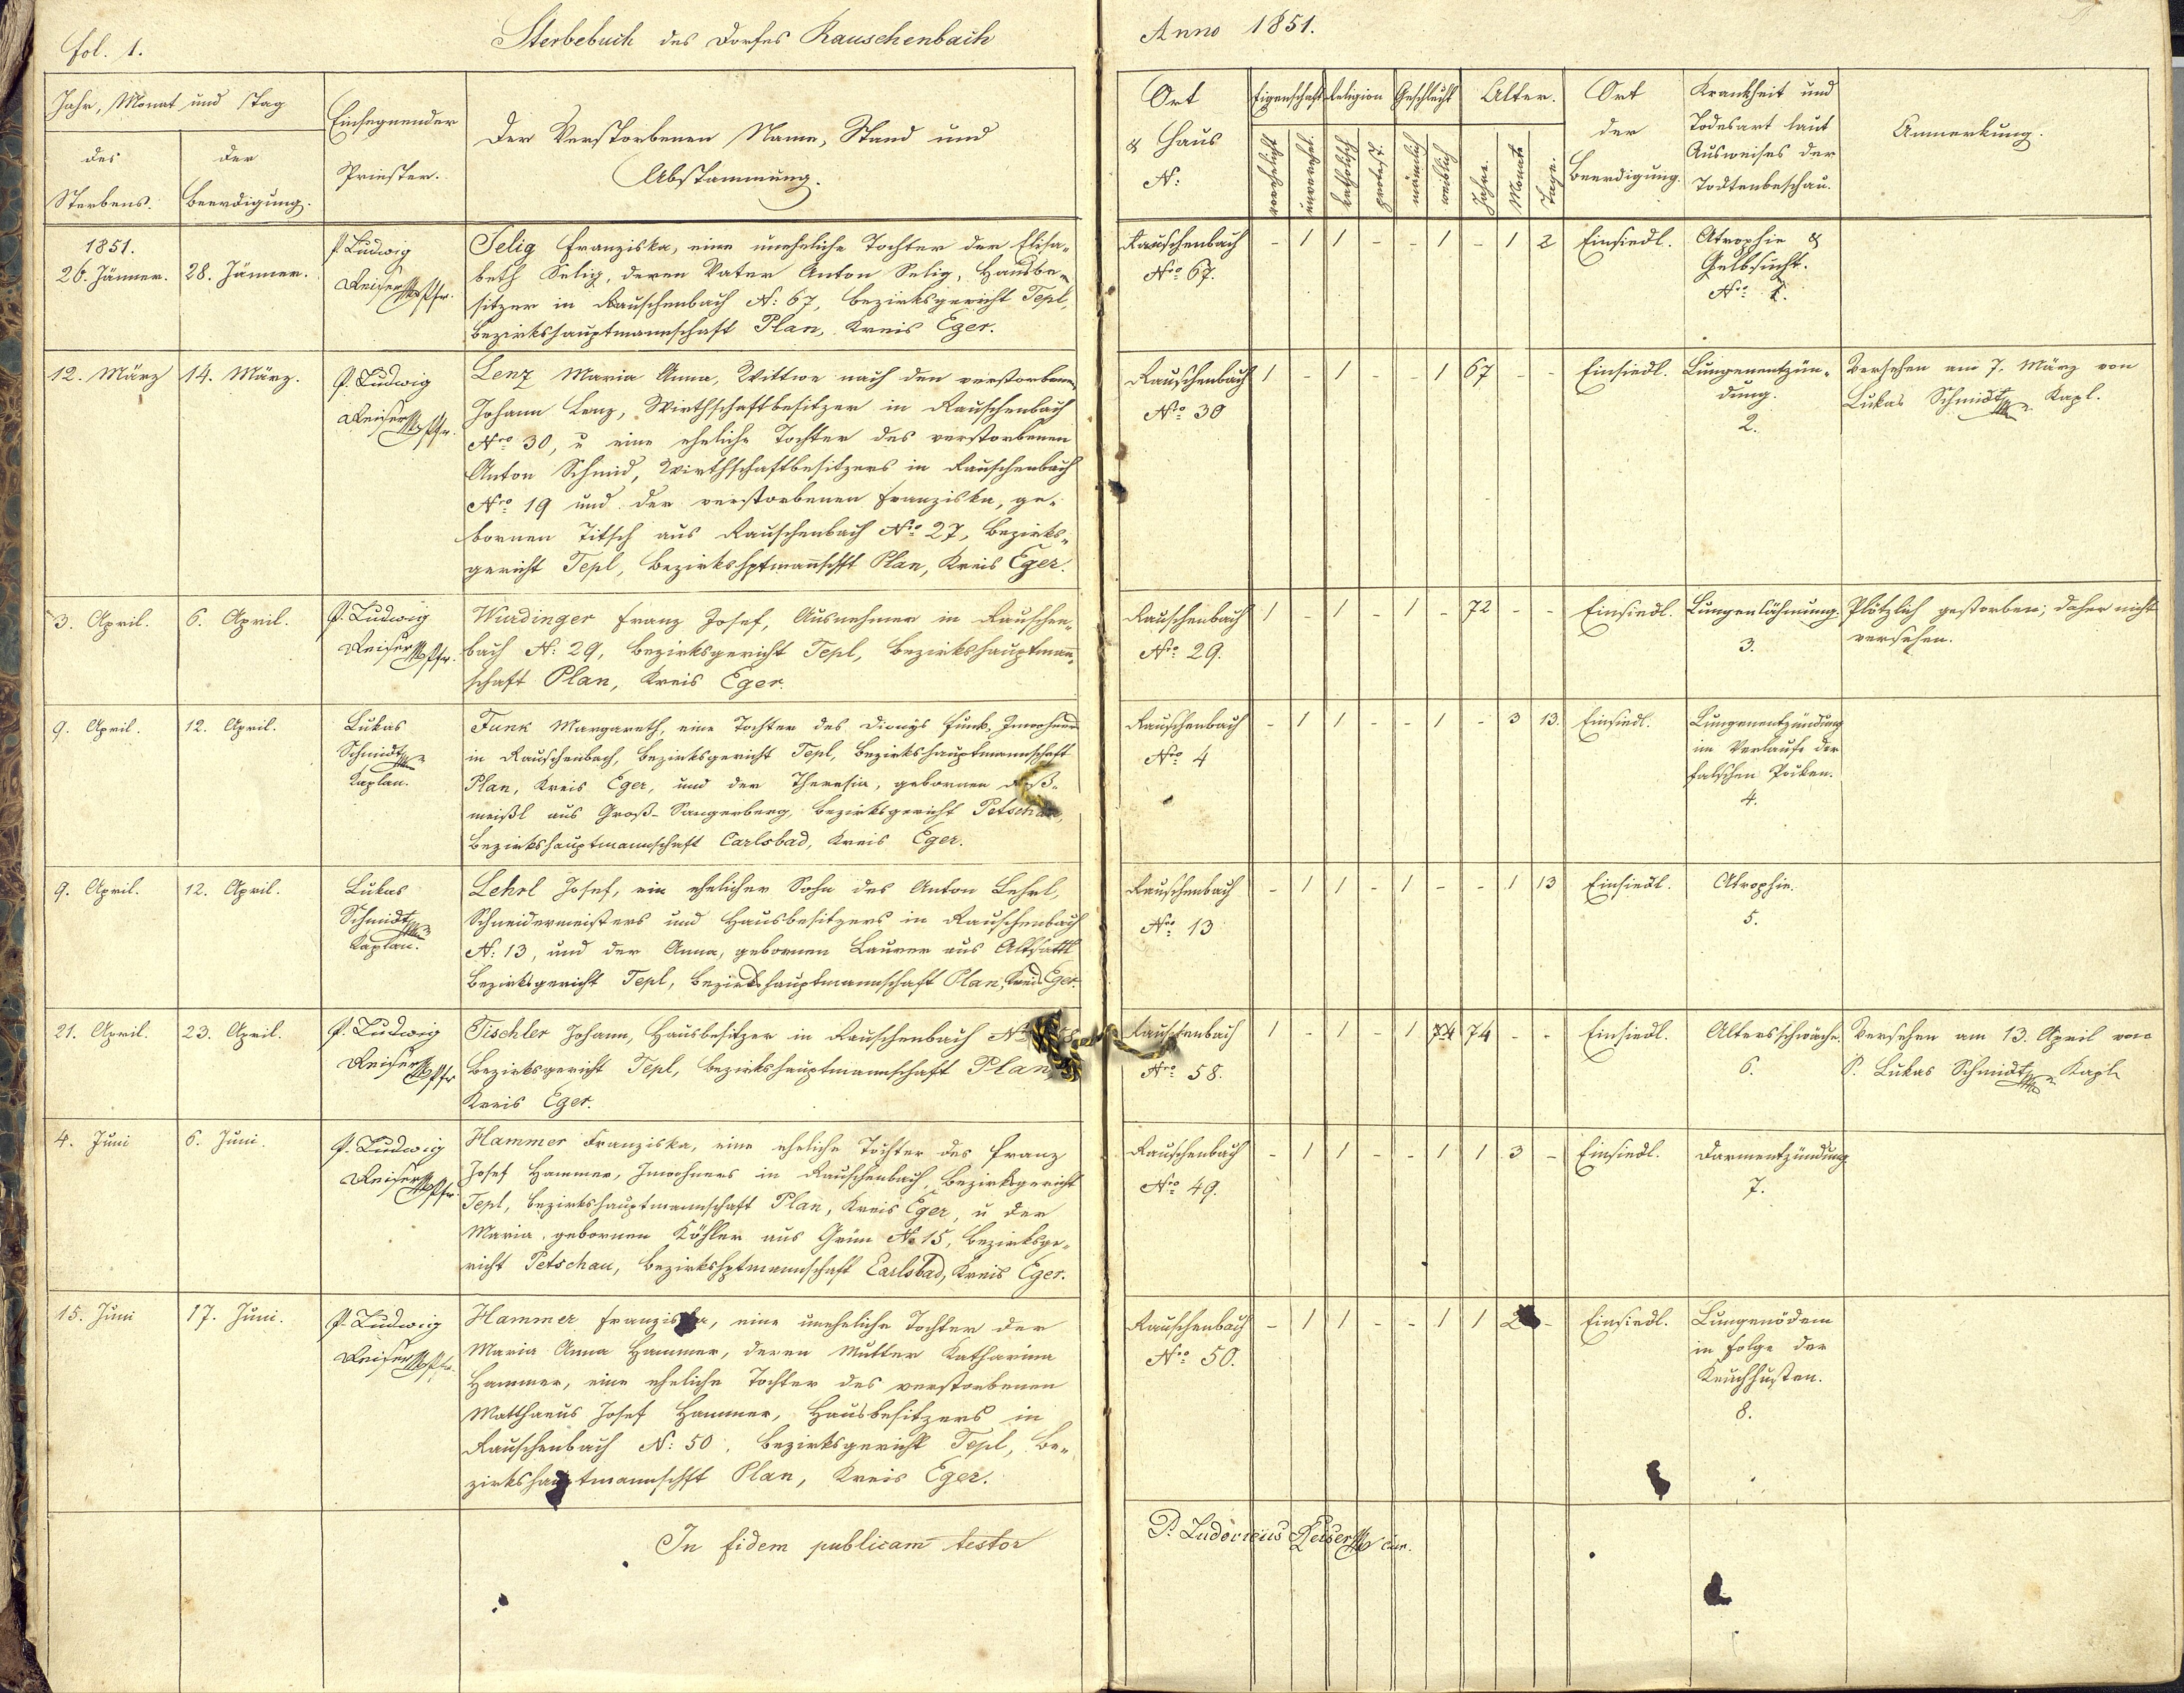 fol. 1.
Sterbebuch des Dorfes Rauschenbach
Anno 1851.
Jahr, Monat und Tag
des Sterbens.
der Beerdigung.
Einsegnender
Priester.
Der Verstorbenen Name, Stand und
Abstammung.
Ort
& Haus
N:
Eigenschaft
verehelicht
unverehel.
Religion
katholisch
protest.
Geschlecht
männlich
weiblich
Alter.
Jahre.
Monate
Tage.
Ort
der
Beerdigung.
Krankheit und
Todesart laut
Ausweises der
Todtenbeschau.
Anmerkung.
1851.
26. Jänner.
28. Jänner.
P. Ludwig
Reiser Pfr.
Selig Franziska, eine uneheliche Tochter der Elisa-
beth Selig, deren Vater Anton Selig, Hausbe-
sitzer in Rauschenbach N: 67, Bezirksgericht Tepl,
Bezirkshauptmannschaft Plan, Kreis Eger.
Rauschenbach
Nro 67.
- 1 1 - - 1 - 1 2
Einsiedl.
Atrophie &
Gelbsucht.
Nro 1.
12. März
14. März.
P. Ludwig
Reiser Pfr.
Lenz Maria Anna, Wittwe nach den verstorbenen
Johann Lenz, Wirthschaftbesitzer in Rauschenbach
Nro 30, u eine eheliche Tochter des verstorbenen
Anton Schmid, Wirthschaftbesitzers in Rauschenbach
Nro 19 und der verstorbenen Franziska, ge-
bornen Titsch aus Rauschenbach Nro 27, Bezirks-
gericht Tepl, Bezirkshptmannschft Plan, Kreis Eger.
Rauschenbach
Nro 30
1 - 1 - 1 67 - -
Einsiedl.
Lungenentzün-
dung.
2.
Versehen am 7. März von
Lukas Schmidt Kapl.
3. April.
6. April.
P. Ludwig
Reiser Pfr.
Wurdinger Franz Josef, Ausnehmer in Rauschen-
bach N: 29, Bezirksgericht Tepl, Bezirkshauptmann-
schaft Plan, Kreis Eger.
Rauschenbach
Nro 29.
1 - 1 - 1 - 72 - -
Einsiedl.
Lungenlähmung.
3.
Plötzlich gestorben; daher nicht
versehen.
9. April.
12. April.
Lukas
Schmidt
Kaplan.
Funk Margareth, eine Tochter des Dionys Funk, Inwohners
in Rauschenbach, Bezirksgericht Tepl, Bezirkshauptmannschaft
Plan, Kreis Eger, und der Theresia, gebornen
meißl aus Groß-Sangerberg, Bezirksgericht Petschau,
Bezirkshauptmannschaft Carlsbad, Kreis Eger.
Rauschenbach
Nro 4
- 1 1 - - 1 - 3 13.
Einsiedl.
Lungenentzündung
im Verlaufe der
falschen Pocken.
4.
9. April.
12. April.
Lukas
Schmidt
Kaplan.
Lehrl Josef, ein ehelicher Sohn des Anton Lehrl,
Schneidermeisters und Hausbesitzers in Rauschenbach
N: 13, und der Anna, gebornen Laurer aus Altsattl
Bezirksgericht Tepl, Bezirkshauptmannschaft Plan, Kreis Eger.
Rauschenbach
Nro 13
- 1 1 - 1 - - 1 13
Einsiedl.
Atrophie.
5.
21. April.
23. April.
P. Ludwig
Reiser Pfr
Tischler Johann, Hausbesitzer in Rauschenbach
Bezirksgericht Tepl, Bezirkshauptmannschaft Plan
Kreis Eger.
Rauschenbach
Nro 58.
1 - 1 - 1 74 74 - -
Einsiedl.
Altersschwäche.
6.
Versehen am 13. April von
P. Lukas Schmidt Kapl
4. Juni
6. Juni.
P. Ludwig
Reiser Pfr.
Hammer Franziska, eine eheliche Tochter des Franz
Josef Hammer, Inwohners in Rauschenbach, Bezirksgericht
Tepl, Bezirkshauptmannschaft Plan, Kreis Eger, u der
Maria, gebornen Köhler aus Grün No 15, Bezirksge-
richt Petschau, Bezirkshptmannschaft Carlsbad, Kreis Eger.
Rauschenbach
Nro 49.
- 1 1 - - 1 1 3 -
Einsiedl.
Darmentzündung
7.
15. Juni
17. Juni.
P. Ludwig
Reiser Pfr.
Hammer Franziska, eine uneheliche Tochter der
Maria Anna Hammer, deren Mutter Katharina
Hammer, eine eheliche Tochter des verstorbenen
Matthaeus Josef Hammer, Hausbesitzers in
Rauschenbach N: 50, Bezirksgericht Tepl, Be-
zirkshauptmannschft Plan, Kreis Eger.
Rauschenbach
Nro 50.
- 1 1 - - 1 1 2 -
Einsiedl.
Lungenödem
in Folge der
Keuchhusten.
8.
In fidem publicam testor
P. Ludovicus Reiser cur.